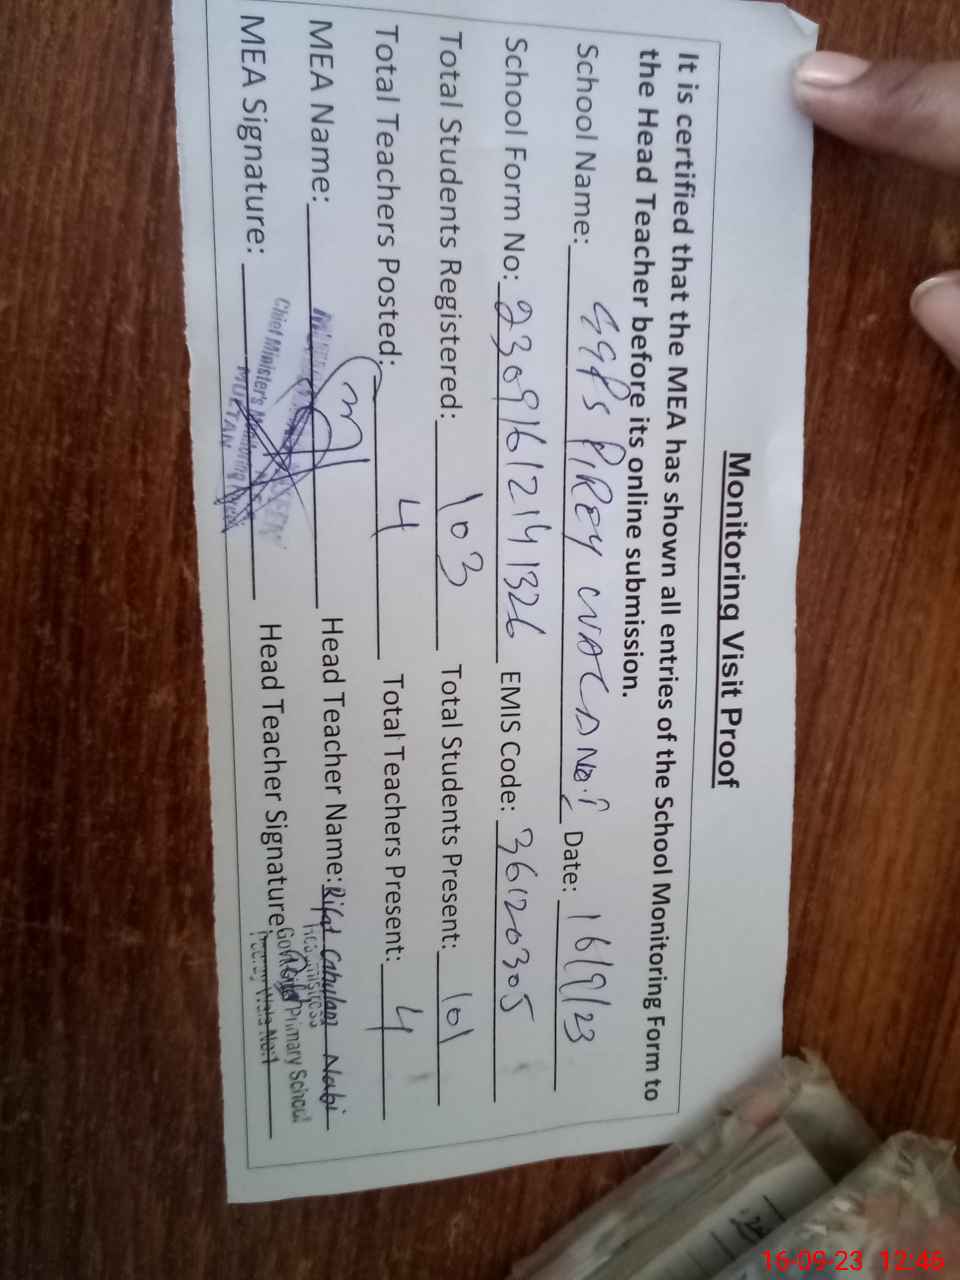 Monitoring Visit Proof
It is certified that the MEA has shown all entries of the School Monitoring Form to
the Head Teacher before its online submission.
School Name: GGPS PIREY WALA No.1 Date: 16/9/23
School Form No: 23091612141326 EMIS Code: 36120305
Total Students Registered: 103 Total Students Present: 101
Total Teachers Posted: 4 Total Teachers Present: 4
MEA Name: Head Teacher Name: Rifat
MEA Signature: Head Teacher Signature:
Chief Minister's Monitoring
MULTAN
Headmistress
Govt. Girls Primary School
Wala No:1
16-09-23 12:46